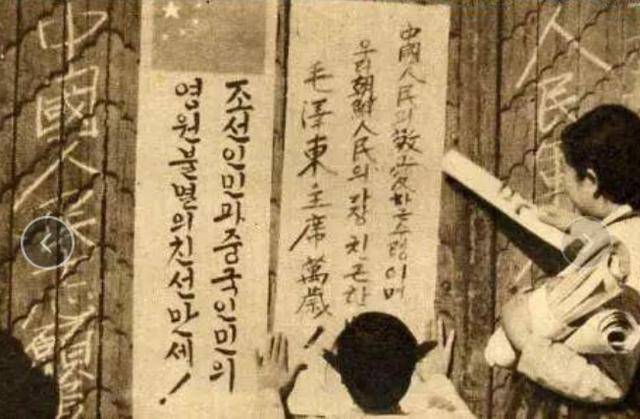 人民
中國人民의敬愛하는수령이며
우리朝鮮人民의가장친근한
毛澤東主席萬歲!
조선인민과중국인민의
영원불멸의친선만세!
中國人民志願